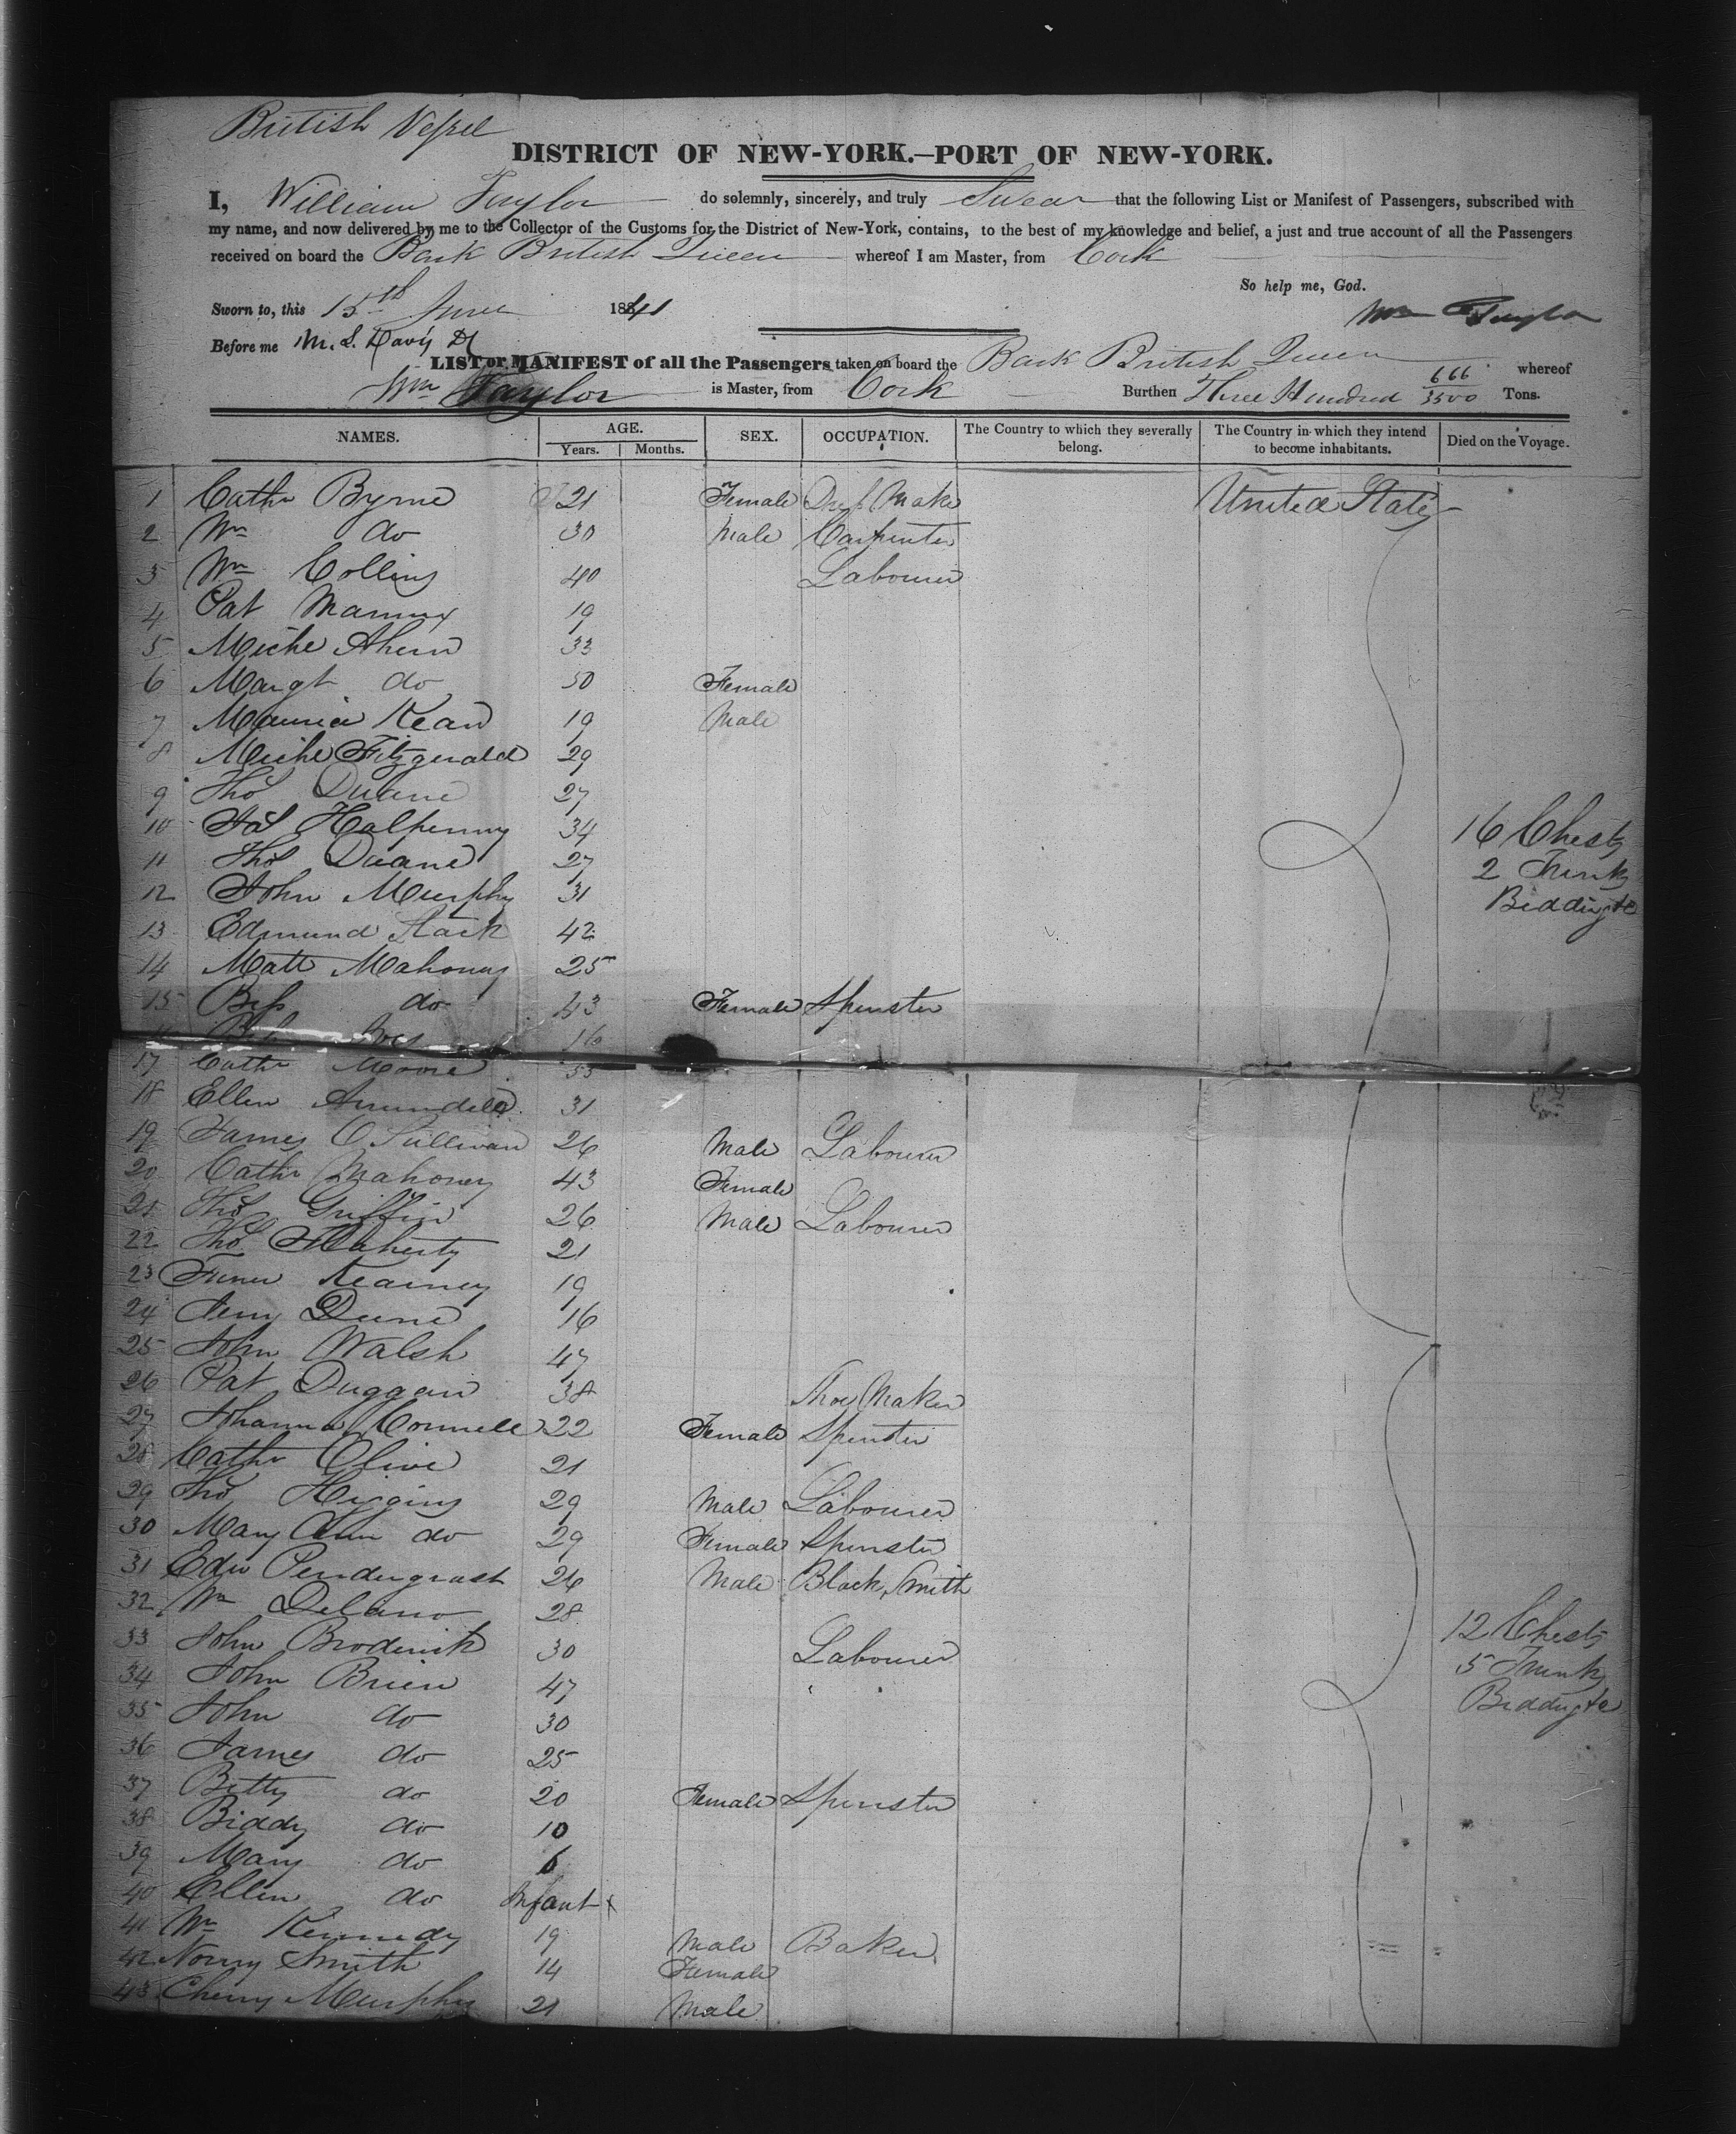 British Vessel
DISTRICT OF NEW-YORK.—PORT OF NEW-YORK.
I, William Taylor do solemnly, sincerely, and truly Swear that the following List or Manifest of Passengers, subscribed with
my name, and now delivered by me to the Collector of the Customs for the District of New-York, contains, to the best of my knowledge and belief, a just and true account of all the Passengers
received on board the Bark British Queen whereof I am Master, from Cork
So help me, God.
Sworn to, this 15th June 1841
Wm Taylor
Before me M. S.
LIST or MANIFEST of all the Passengers taken on board the Bark British Queen whereof
Wm Taylor is Master, from Cork Burthen Three Hundred 666/3500 Tons.
NAMES. AGE. SEX. OCCUPATION. The Country to which they severally belong. The Country in which they intend to become inhabitants. Died on the Voyage.
Years. Months.
1 Cathr Byrne 21 Female Dress Maker United States
2 Wm do 30 Male Carpenter
3 Wm Collins 40 Labourer
4 Pat 19
5 Miche Ahern 33
6 Margt do 50 Female
7 Maurice Kean 19 Male
8 Miche Fitzgerald 29
9 Thos Duane 27
10 Jas Halpenny 34 16 Chests
11 Thos Duane 27 2 Trunks
12 John Murphy 31 Bedding &c
13 Edmund Stack 42
14 Matt Mahoney 25
15 Bess do 43 Female Spinster
16
17 Cathr Moore 55
18 Ellen Arundell 31
19 James O'Sullivan 26 Male Labourer
20 Cathr Mahoney 43 Female
21 Thos Griffin 26 Male Labourer
22 Thos Flaherty 21
23 Kearney 19
24 Jerry Dune 16
25 John Walsh 47
26 Pat Duggan 38 Shoe Maker
27 Johanna Connell 22 Female Spinster
28 Cathr Olive 21
29 Thos Higgins 29 Male Labourer
30 Mary Ann do 29 Female Spinster
31 Edw Pendergrast 26 Male Black Smith
32 Wm Delano 28
33 John Broderick 30 Labourer 12 Chests
34 John Brien 47 5 Trunks
35 John do 30 Bedding &c
36 James do 25
37 Betty do 20 Female Spinster
38 Biddy do 10
39 Mary do 6
40 Ellen do Infant
41 Wm Kennedy 19 Male Baker
42 Norry Smith 14 Female
43 Murphy 21 Male